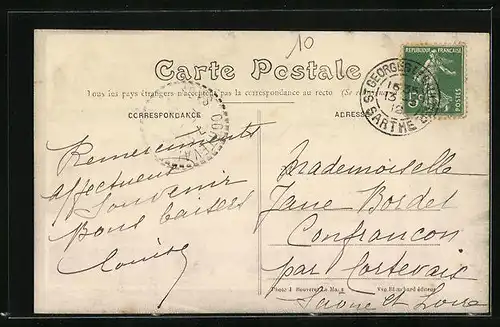 10
Carte Postale
Tous les pays étrangers n'acceptent pas la correspondance au recto
CORRESPONDANCE
ADRESSE
REPUBLIQUE FRANÇAISE
POSTES
5
ST GEORGES
SARTHE
Remerciements
affectueux
Souvenir
Bons baisers
Louise
Mademoiselle
Jane Bordet
Confrançon
par Cortevaix
Saône et Loire
Photo J. Bouveret Le Mans
Vve Blanchard éditeur